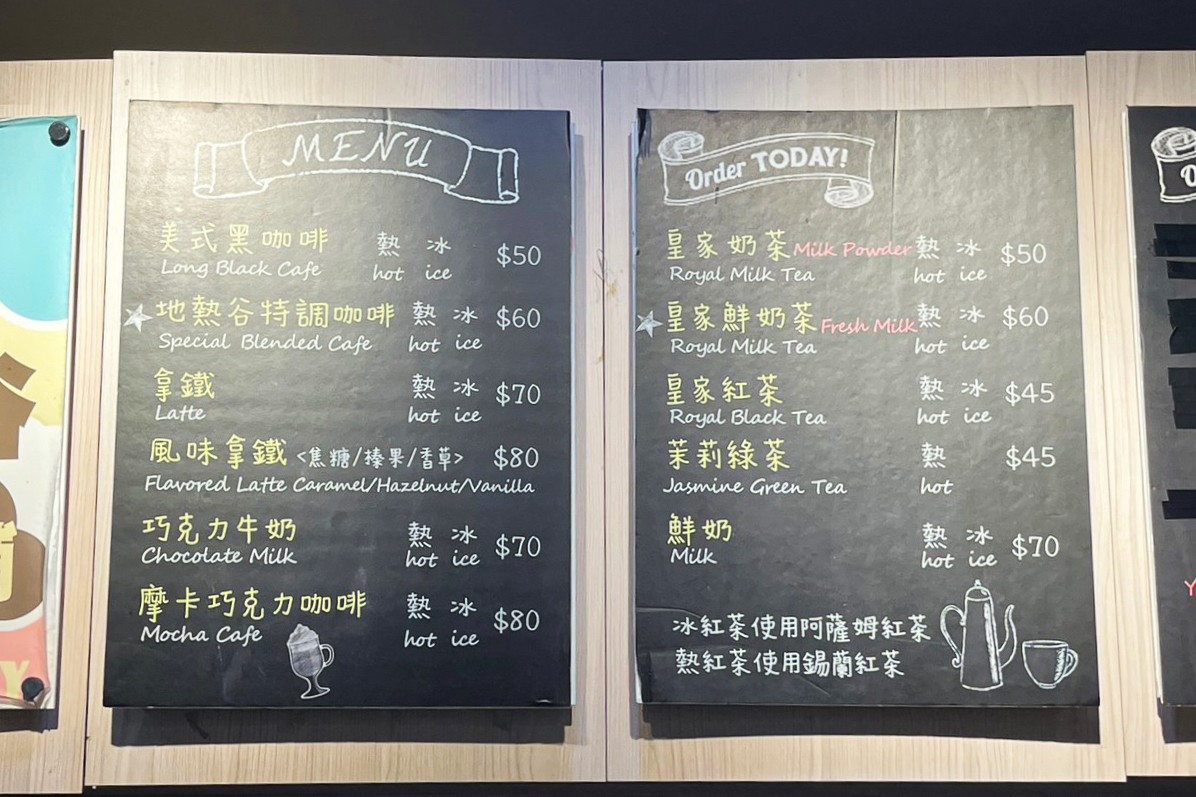 MENU
美式黑咖啡 熱 冰 $50
Long Black Cafe hot ice
地熱谷特調咖啡 熱 冰 $60
Special Blended Cafe hot ice
拿鐵 熱 冰 $70
Latte hot ice
風味拿鐵 <焦糖/榛果/香草> $80
Flavored Latte Caramel/Hazelnut/Vanilla
巧克力牛奶 熱 冰 $70
Chocolate Milk hot ice
摩卡巧克力咖啡 熱 冰 $80
Mocha Cafe hot ice
Order TODAY!
皇家奶茶 Milk Powder 熱 冰 $50
Royal Milk Tea hot ice
皇家鮮奶茶 Fresh Milk 熱 冰 $60
Royal Milk Tea hot ice
皇家紅茶 熱 冰 $45
Royal Black Tea hot ice
茉莉綠茶 熱 $45
Jasmine Green Tea hot
鮮奶 熱 冰 $70
Milk hot ice
冰紅茶使用阿薩姆紅茶
熱紅茶使用錫蘭紅茶